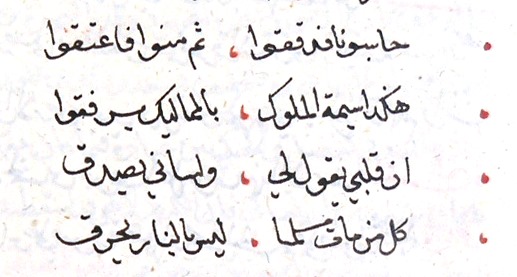 حاسبونا فدققوا ، ثم منوا فاعتقوا
هكذا سيمة الملوك ، بالمماليك يرفقوا
ان قلبي يقول لي ، ولساني يصدق
كل من مات مسلما . ليس بالنار يحرق